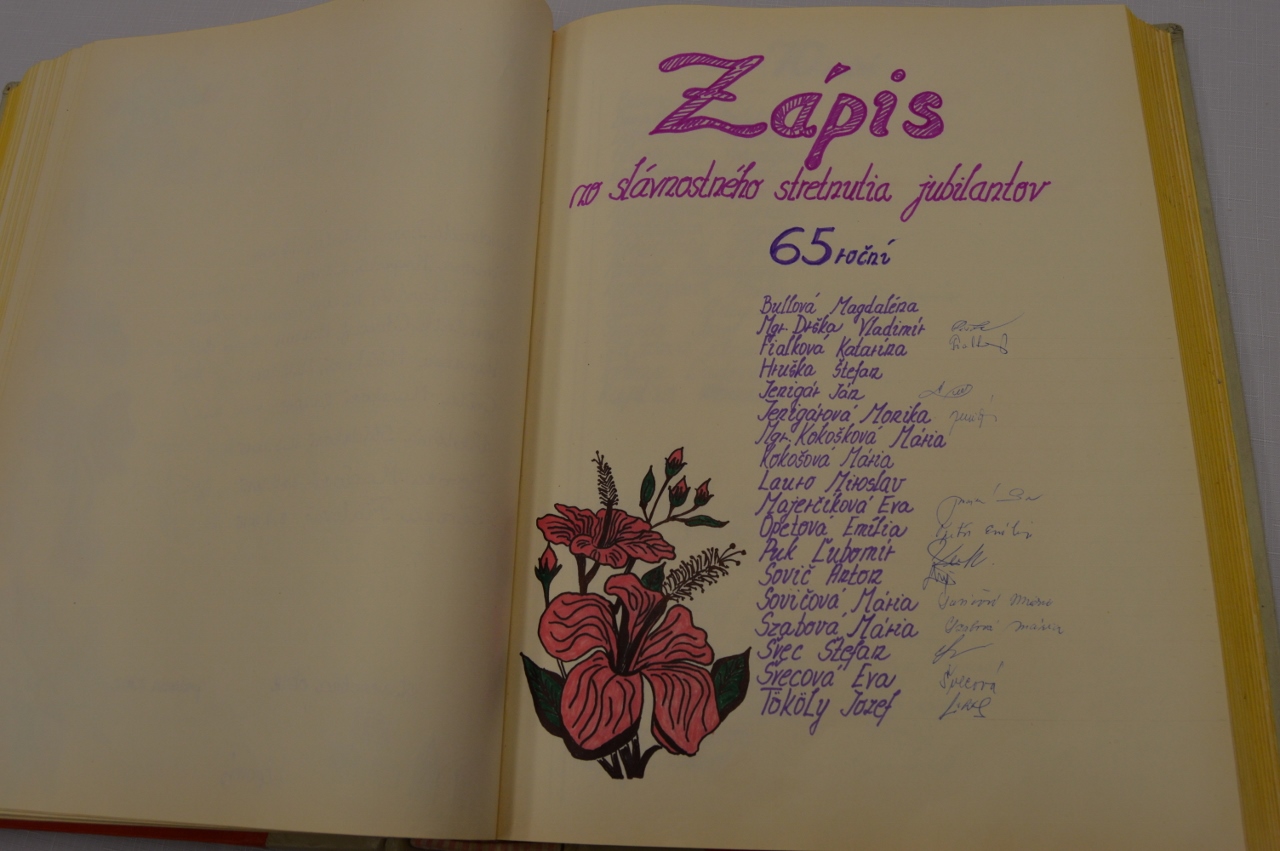 Zápis
zo slávnostného stretnutia jubilantov
65 roční
Bullová Magdaléna
Mgr. Drška Vladimír
Fialková Katarína
Hruška Štefan
Jenigár Ján
Jenigárová Monika
Mgr. Kokošková Mária
Kokošová Mária
Lauro Miroslav
Majerčíková Eva
Opetová Emília
Puk Ľubomír
Sovič Anton
Sovičová Mária
Szabová Mária
Švec Štefan
Švecová Eva Švecová
Tököly Jozef